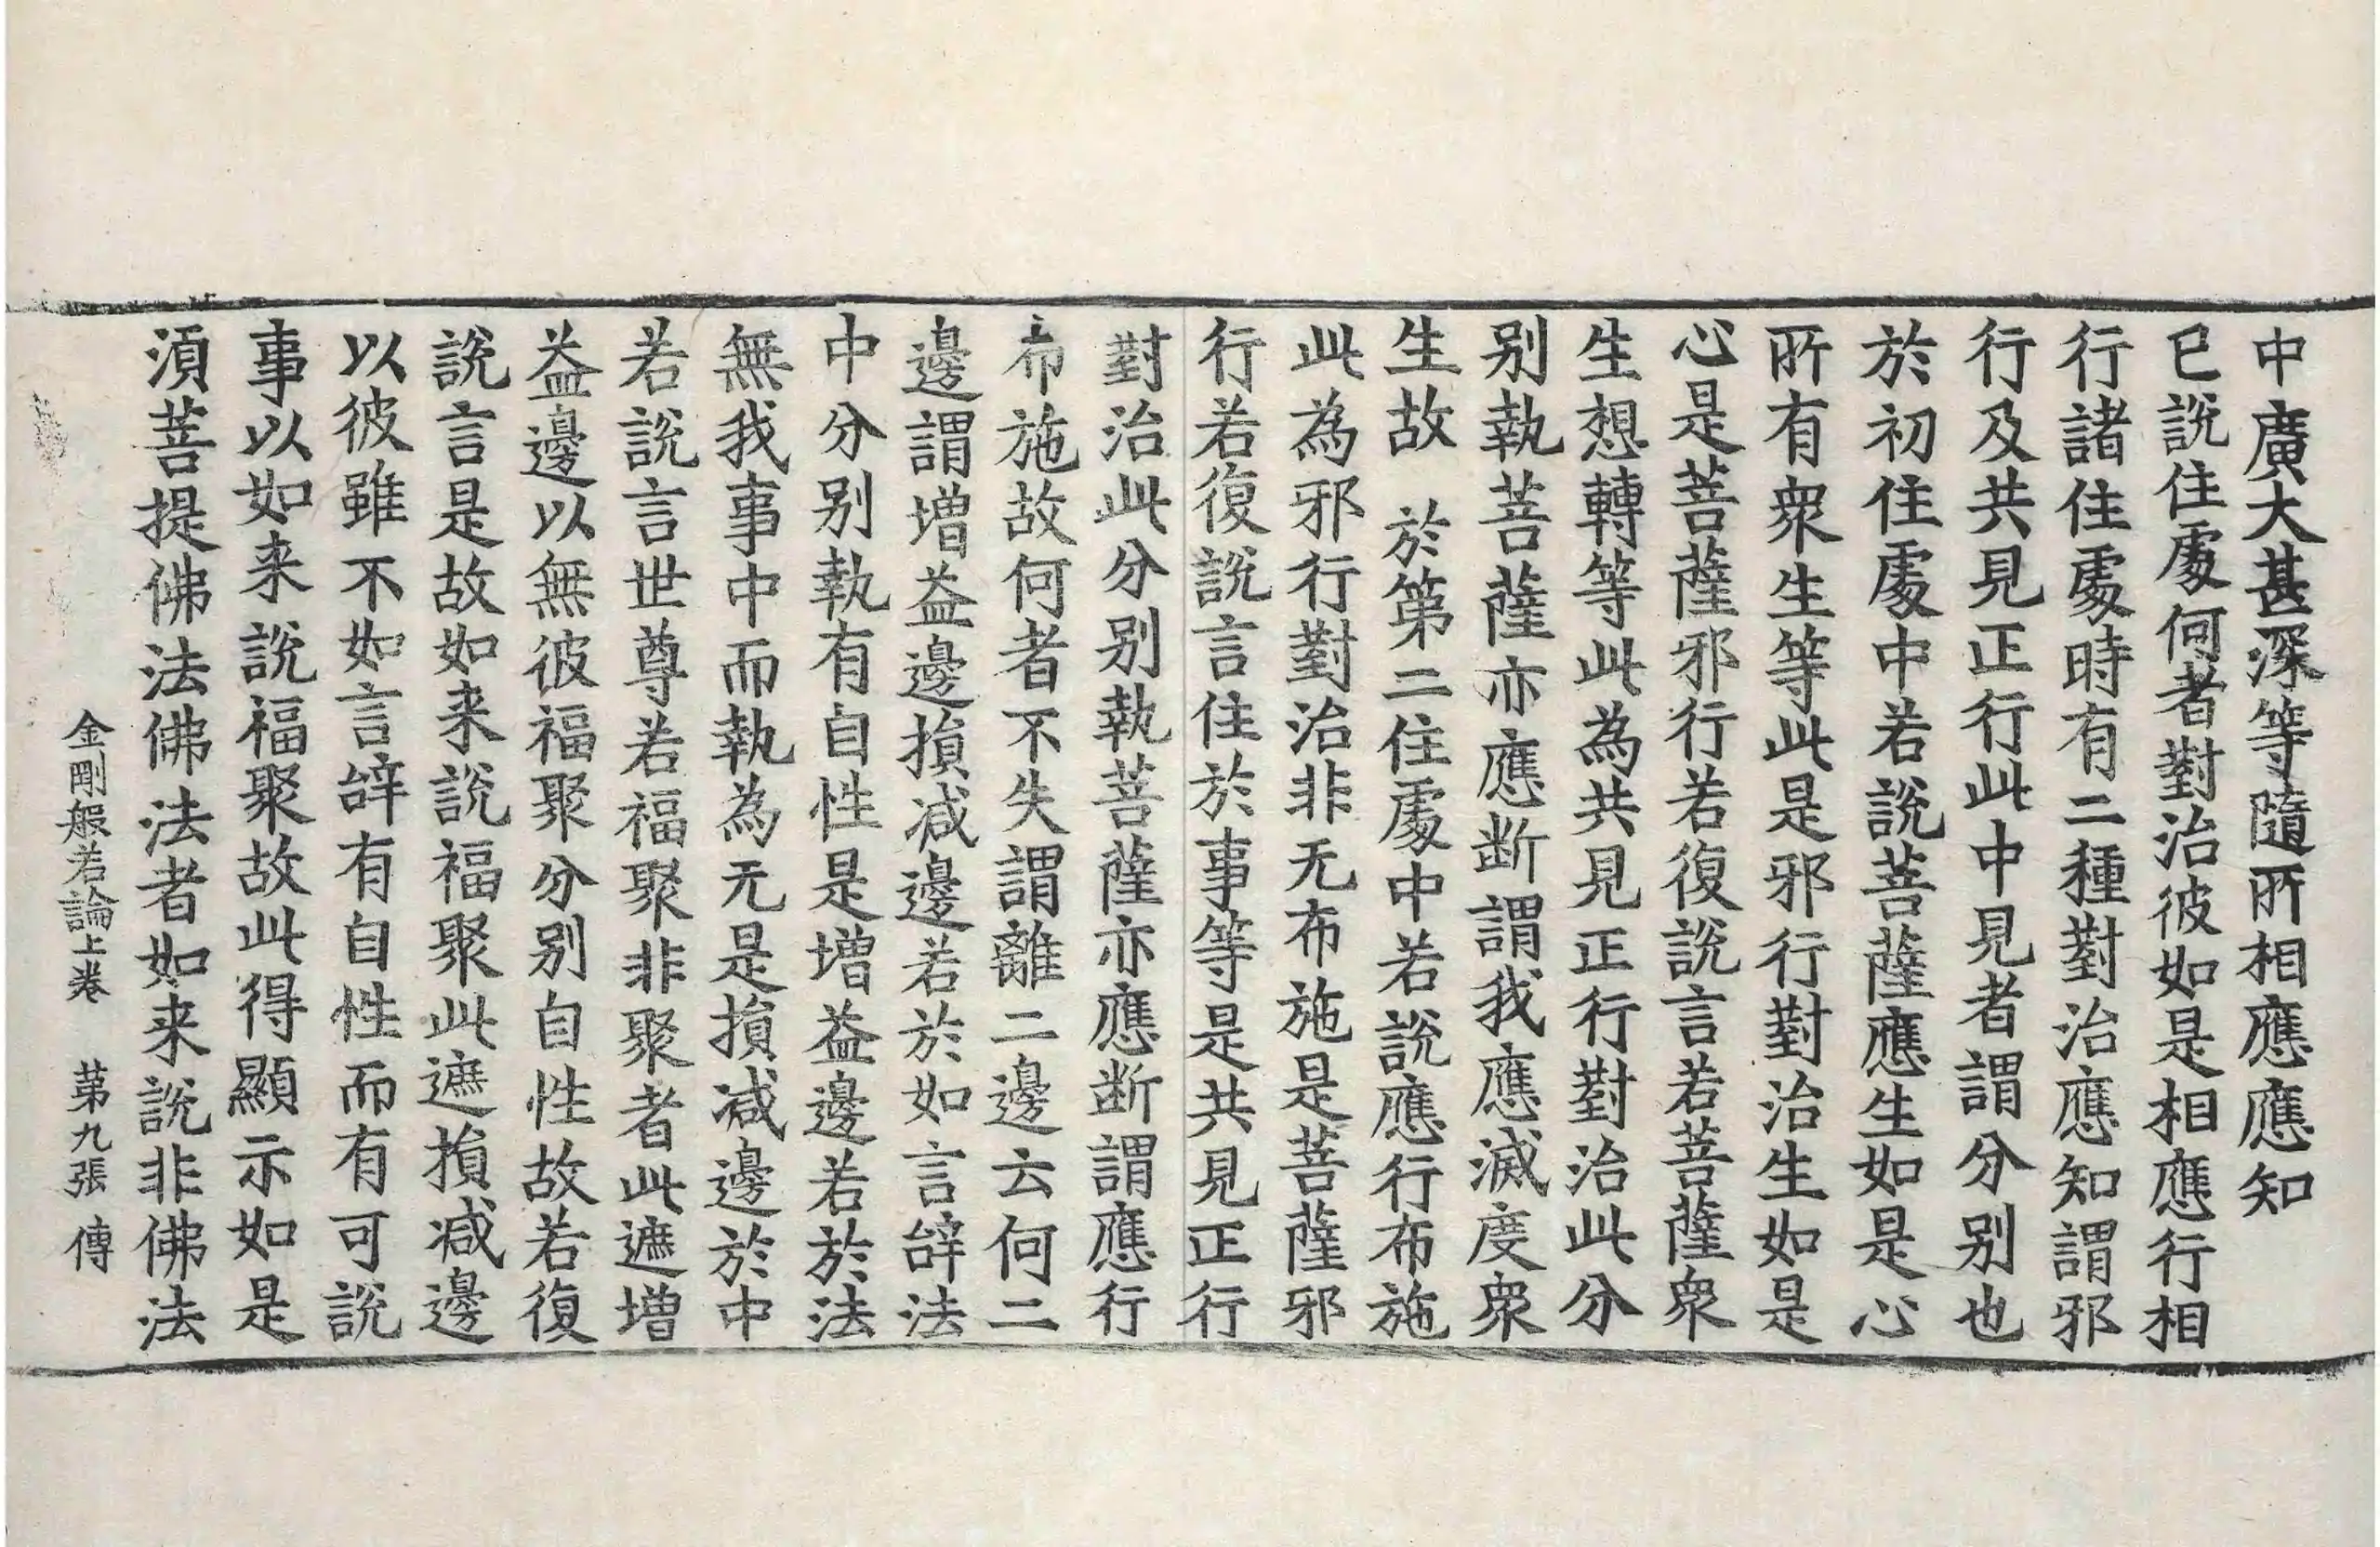 中廣大甚深等隨所相應應知
已說住處何者對治彼如是相應行相
行諸住處時有二種對治應知謂邪
行及共見正行此中見者謂分別也
於初住處中若說菩薩應生如是心
所有衆生等此是邪行對治生如是
心是菩薩邪行若復說言若菩薩衆
生想轉等此為共見正行對治此分
别執菩薩亦應断謂我應滅度衆
生故　於第二住處中若說應行布施
此為邪行對治非无布施是菩薩邪
行若復說言住於事等是共見正行
對治此分别執菩薩亦應断謂應行
布施故何者不失謂離二邊云何二
邊謂增益邊損减邊若於如言辝法
中分别執有自性是增益邊若於法
無我事中而執為无是損减邊於中
若說言世尊若福聚非聚者此遮增
益邊以無彼福聚分别自性故若復
說言是故如来說福聚此遮損减邊
以彼雖不如言辝有自性而有可說
事以如来說福聚故此得顯示如是
須菩提佛法佛法者如来說非佛法
金剛般若論上卷　第九張　傳